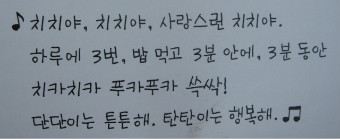 ♪ 치치야, 치치야, 사랑스런 치치야.
하루에 3번, 밥 먹고 3분 안에, 3분 동안
치카치카 푸카푸카 쓱싹!
단단이는 튼튼해. 탄탄이는 행복해. ♫